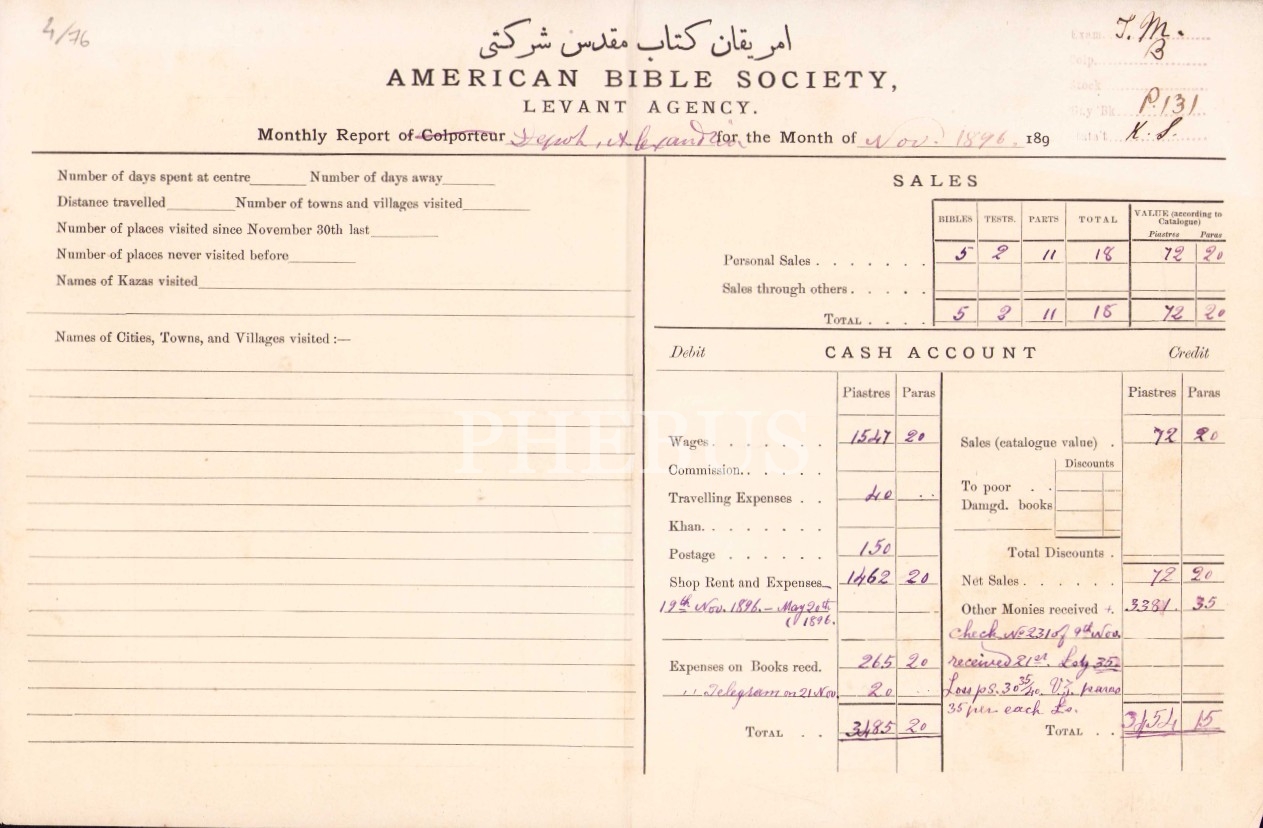 4/76
امريقان كتاب مقدس شركتى
AMERICAN BIBLE SOCIETY,
LEVANT AGENCY.
Exam. T. M.
Colp. B
Stock
Day Bk. P. 131
Stat't. K. S.
Monthly Report of Colporteur Depot, Alexandria for the Month of Nov. 1896. 189
Number of days spent at centre Number of days away
Distance travelled Number of towns and villages visited
Number of places visited since November 30th last
Number of places never visited before
Names of Kazas visited
Names of Cities, Towns, and Villages visited :—
SALES
BIBLES TESTS. PARTS TOTAL VALUE (according to Catalogue)
Piastres Paras
Personal Sales . . . . . . . 5 2 11 18 72 20
Sales through others . . . . .
TOTAL . . . . 5 2 11 18 72 20
Debit CASH ACCOUNT Credit
Piastres Paras
Wages . . . . . . . 1547 20
Commission. . . . . .
Travelling Expenses . . 40 . .
Khan. . . . . . . .
Postage . . . . . . 150
Shop Rent and Expenses 1462 20
19th Nov. 1896. – May 20th 1896.
Expenses on Books recd. 265 20
" Telegram on 21 Nov. 20 . .
TOTAL . . 3485 20
Piastres Paras
Sales (catalogue value) . 72 20
Discounts
To poor . .
Damgd. books
Total Discounts .
Net Sales . . . . . . 72 20
Other Monies received +. 3381. 35
check No 231 of 9th Nov.
received 21st.
Loss ps. 30 35/40. Viz. paras
35 per each
TOTAL . . 3454 15
PHEBUS